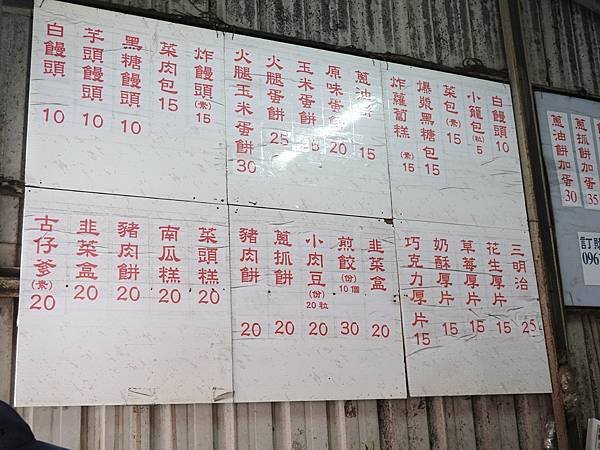 白饅頭 10
小籠包(粒) 5
菜包(素) 15
爆漿黑糖包 15
炸蘿蔔糕(素) 15
蔥油餅 15
原味蛋餅 20
玉米蛋餅
火腿蛋餅 25
火腿玉米蛋餅 30
炸饅頭(素) 15
菜肉包 15
黑糖饅頭 10
芋頭饅頭 10
白饅頭 10
三明治 25
花生厚片 15
草莓厚片 15
奶酥厚片 15
巧克力厚片 15
韭菜盒 20
煎餃(份)10個 30
小肉豆(份)20粒 20
蔥抓餅 20
豬肉餅 20
菜頭糕 20
南瓜糕 20
豬肉餅 20
韭菜盒 20
古仔爹(素) 20
蔥抓餅加蛋 35
蔥油餅加蛋 30
訂購
096